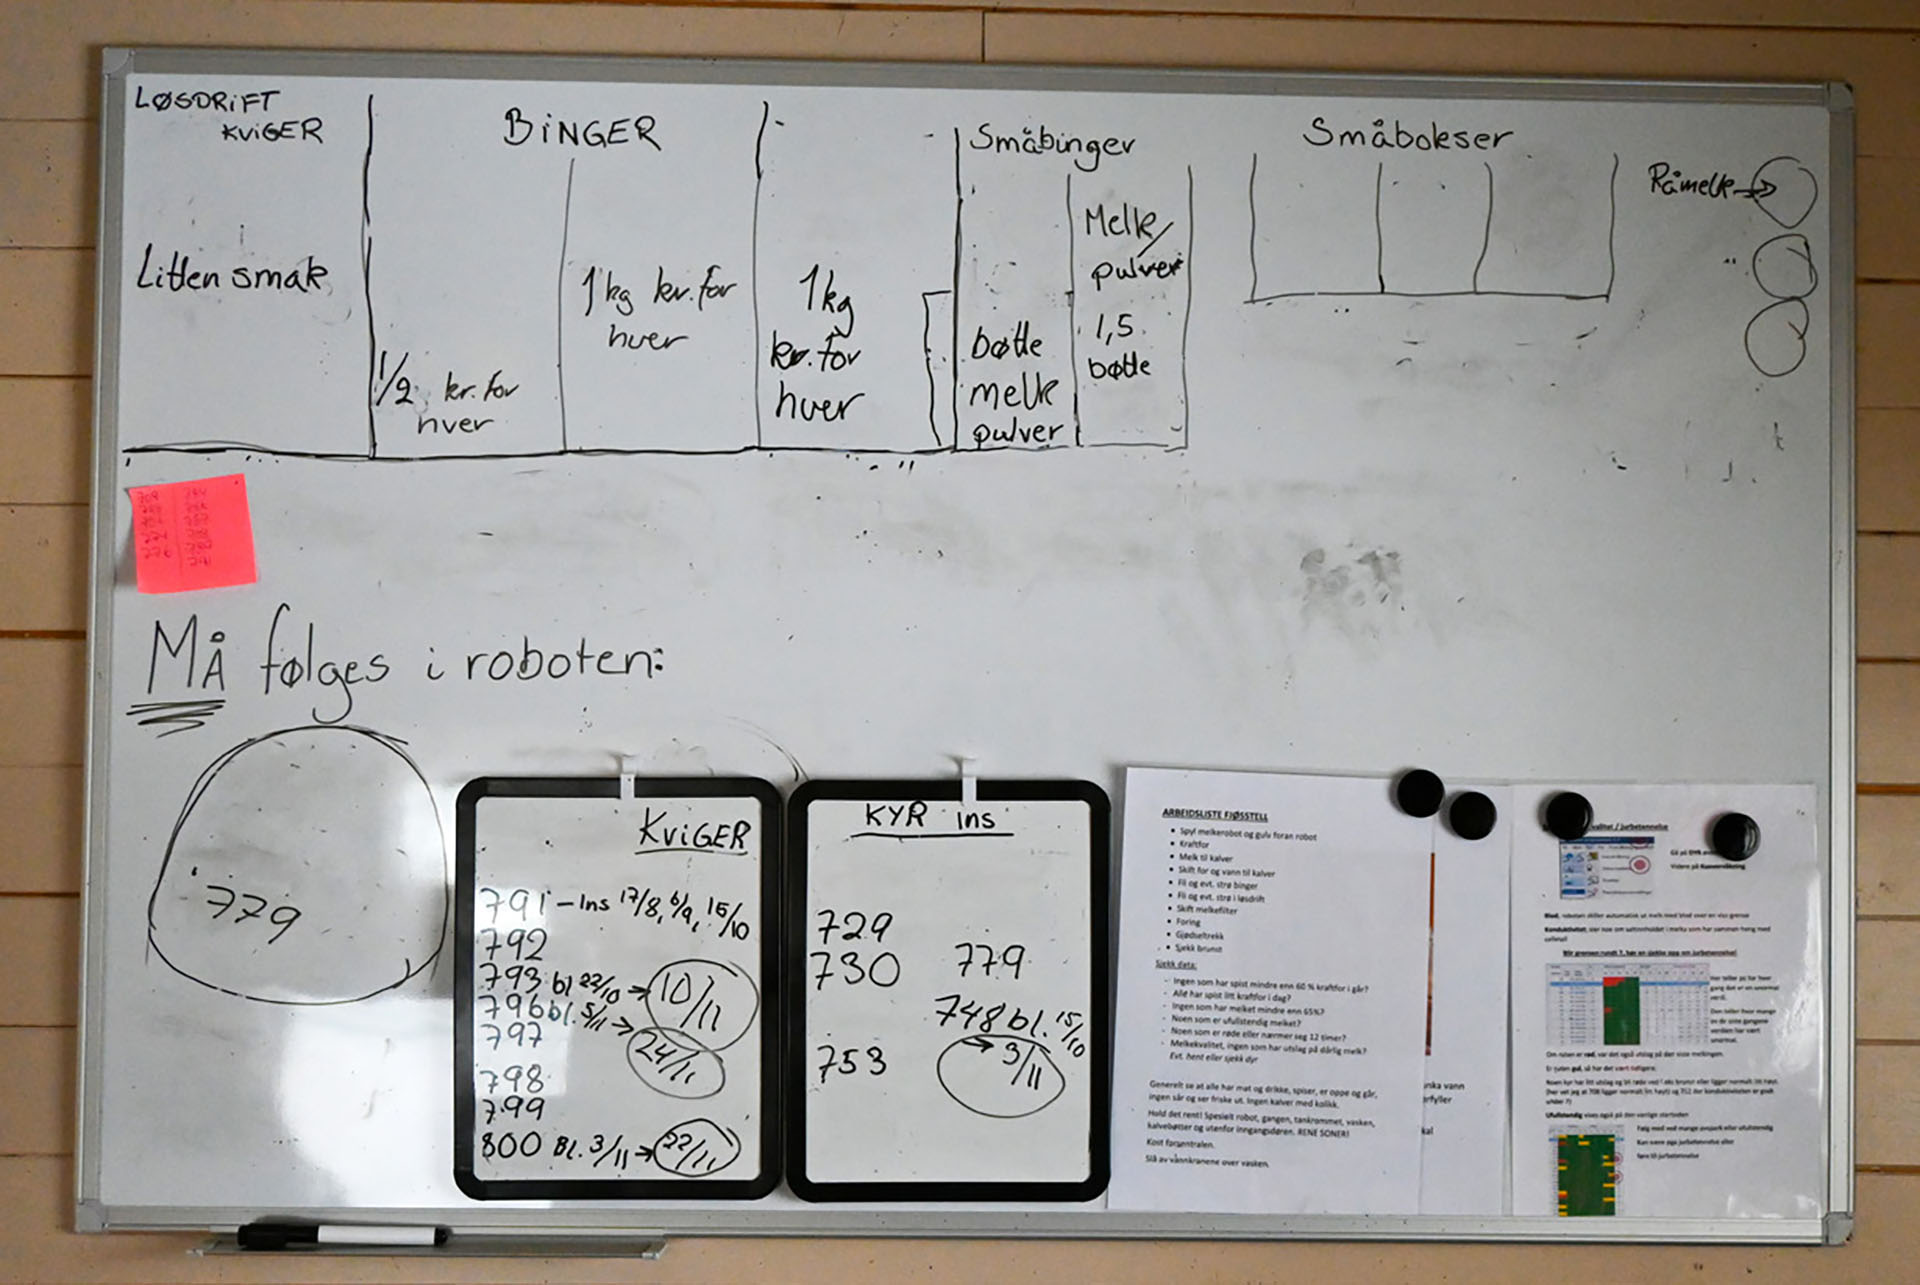 LØSDRIFT
KVIGER
BINGER
Småbinger
Småbokser
Råmelk
Litten smak
1/2 kr.for
hver
1 kg kr.for
hver
1 kg
kr.for
hver
bøtte
melk
pulver
Melk/
pulver
1,5
bøtte
"
MÅ følges i roboten:
779
KVIGER
791 - Ins 17/8, 6/9, 15/10
792
793 bl 22/10 → 10/11
796 bl. 5/11 → 24/11
797
798
799
800 Bl. 3/11 → 22/11
KYR ins
729
730
753
779
748 bl. 15/10
→ 3/11
ARBEIDSLISTE FJØSSTELL
• Spyl melkerobot og gulv foran robot
• Kraftfor
• Melk til kalver
• Skift for og vann til kalver
• Fli og evt. strø binger
• Fli og evt. strø i løsdrift
• Skift melkefilter
• Foring
• Gjødseltrekk
• Sjekk brunst
Sjekk data:
- Ingen som har spist mindre enn 60 % kraftfor i går?
- Alle har spist litt kraftfor i dag?
- Ingen som har melket mindre enn 65%?
- Noen som er ufullstendig melket?
- Noen som er røde eller nærmer seg 12 timer?
- Melkekvalitet, ingen som har utslag på dårlig melk?
Evt. hent eller sjekk dyr
Generelt se at alle har mat og drikke, spiser, er oppe og går,
ingen sår og ser friske ut. Ingen kalver med kolikk.
Hold det rent! Spesielt robot, gangen, tankrommet, vasken,
kalvebøtter og utenfor inngangsdøren. RENE SONER!
Kost forsentralen.
Slå av vannkranene over vasken.
valitet / jurbetennelse
Gå på DYR
Videre på
Blod, roboten skiller automatisk ut melk med blod over en viss grense
Konduktivitet, sier noe om saltinnholdet i melka som har sammen heng med
celletall
Her teller
gang det er en unormal
verdi.
Den teller hvor mange
av de siste gangene
verdien har vært
unormal.
Om ruten er rød, var det også utslag på den siste melkingen.
Er ruten gul, så har det vært tidligere.
Ufullstendig vises også på den vanlige startsiden
Følg med ved mange avspark eller ufullstendig
Kan være pga jurbetennelse eller
føre til jurbetennelse